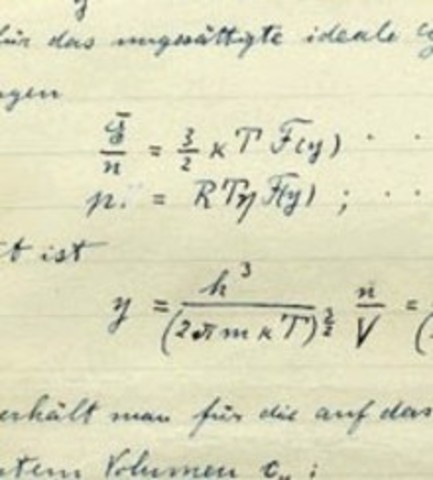 für das ungesättigte ideale G
gen
Ē/n = 3/2 κ T F(y) · ·
p = R T η F(y) ; · ·
t ist
y = h³/(2π m κ T)^{3/2} n/V = (
erhält man für die auf das
tem Volumen c_v :